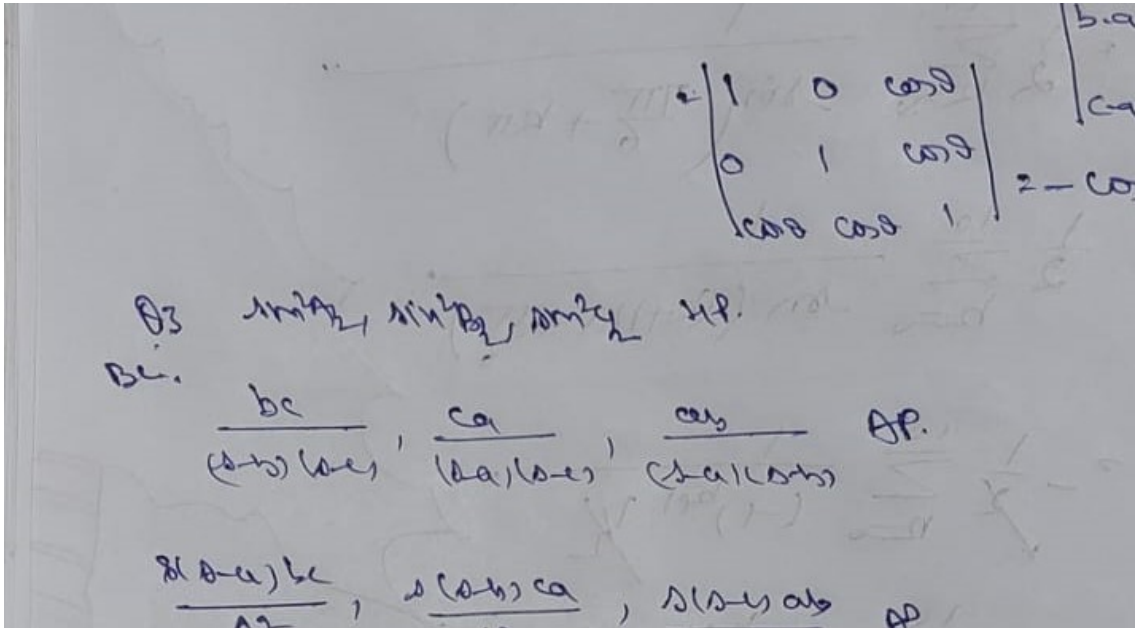 b-a
c-a
= | 1 0 cosθ |
| 0 1 cosθ | = - cos
| cosθ cosθ 1 |
Q3 sin²A/2, sin²B/2, sin²C/2 HP.
bc/(s-b)(s-c), ca/(s-a)(s-c), ab/(s-a)(s-b) AP.
s(s-a)bc/Δ2, s(s-b)ca, s(s-c)ab AP